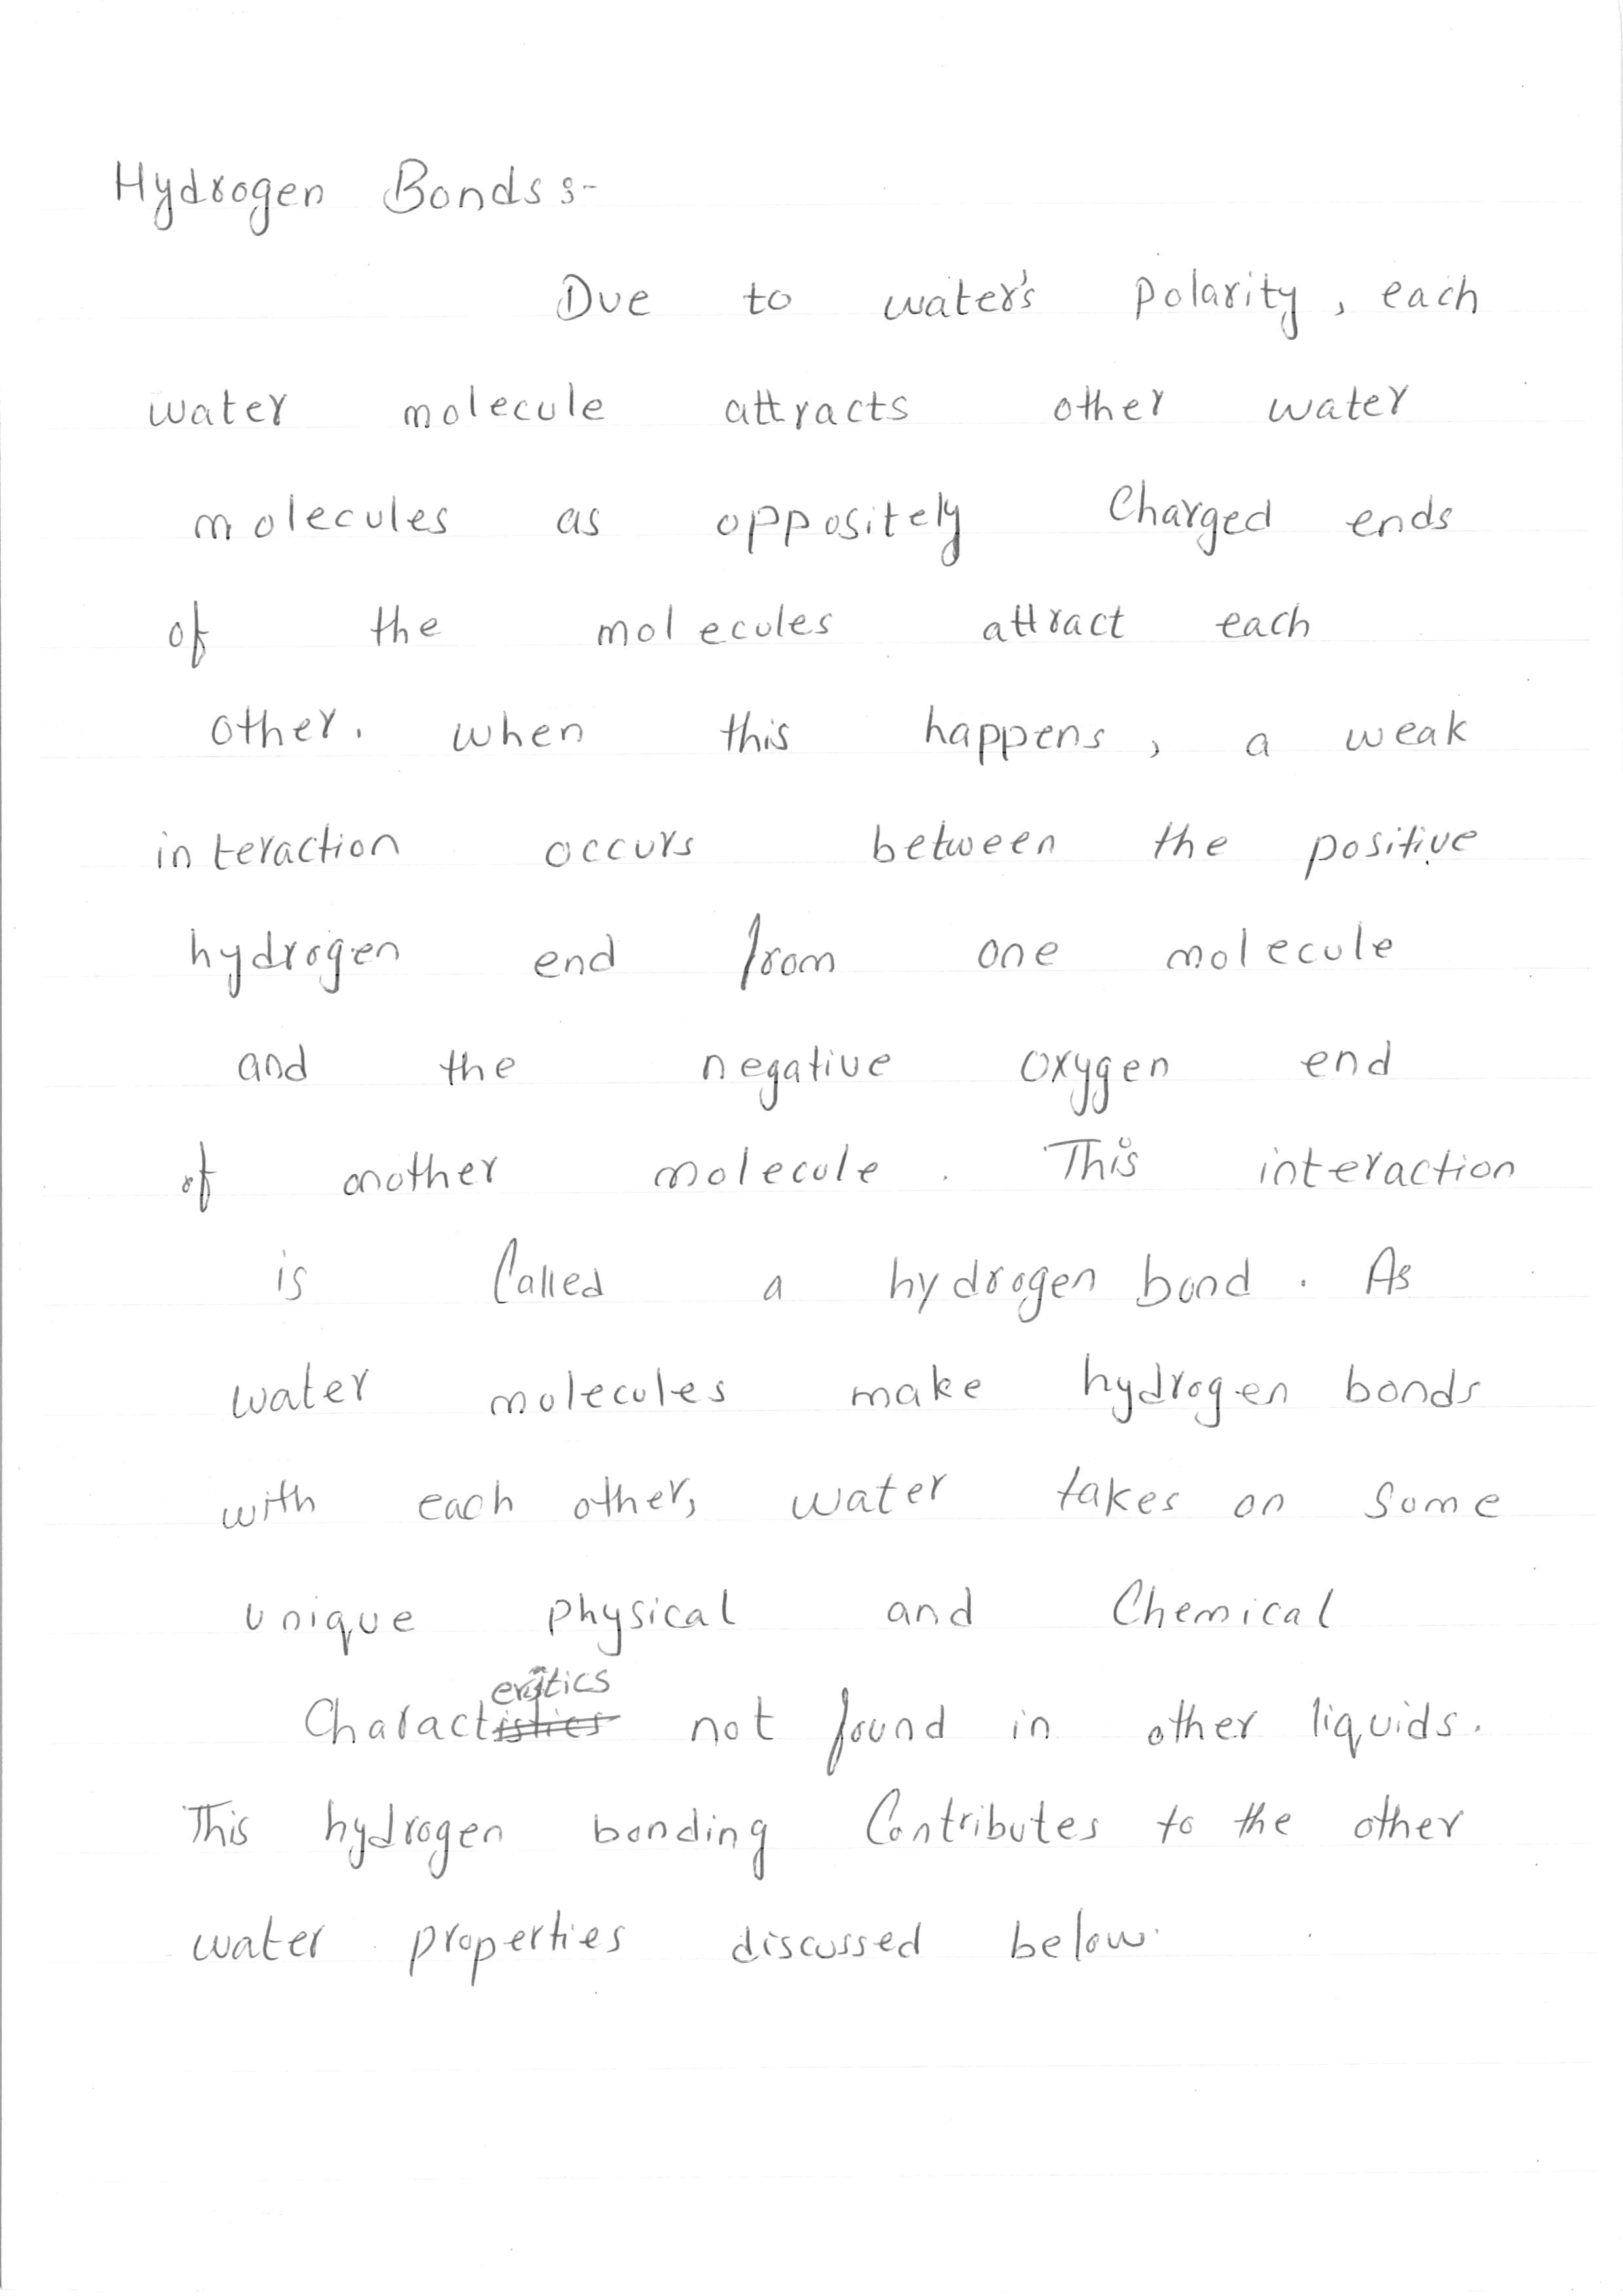 Hydrogen Bonds :-
Due to water's polarity, each
water molecule attracts other water
molecules as oppositely Charged ends
of the molecules attract each
other. when this happens, a weak
interaction occurs between the positive
hydrogen end from one molecule
and the negative oxygen end
of another molecule. This interaction
is Called a hydrogen bond. As
water molecules make hydrogen bonds
with each other, water takes on some
unique physical and Chemical
Characteristics not found in other liquids.
This hydrogen bonding Contributes to the other
water properties discussed below.